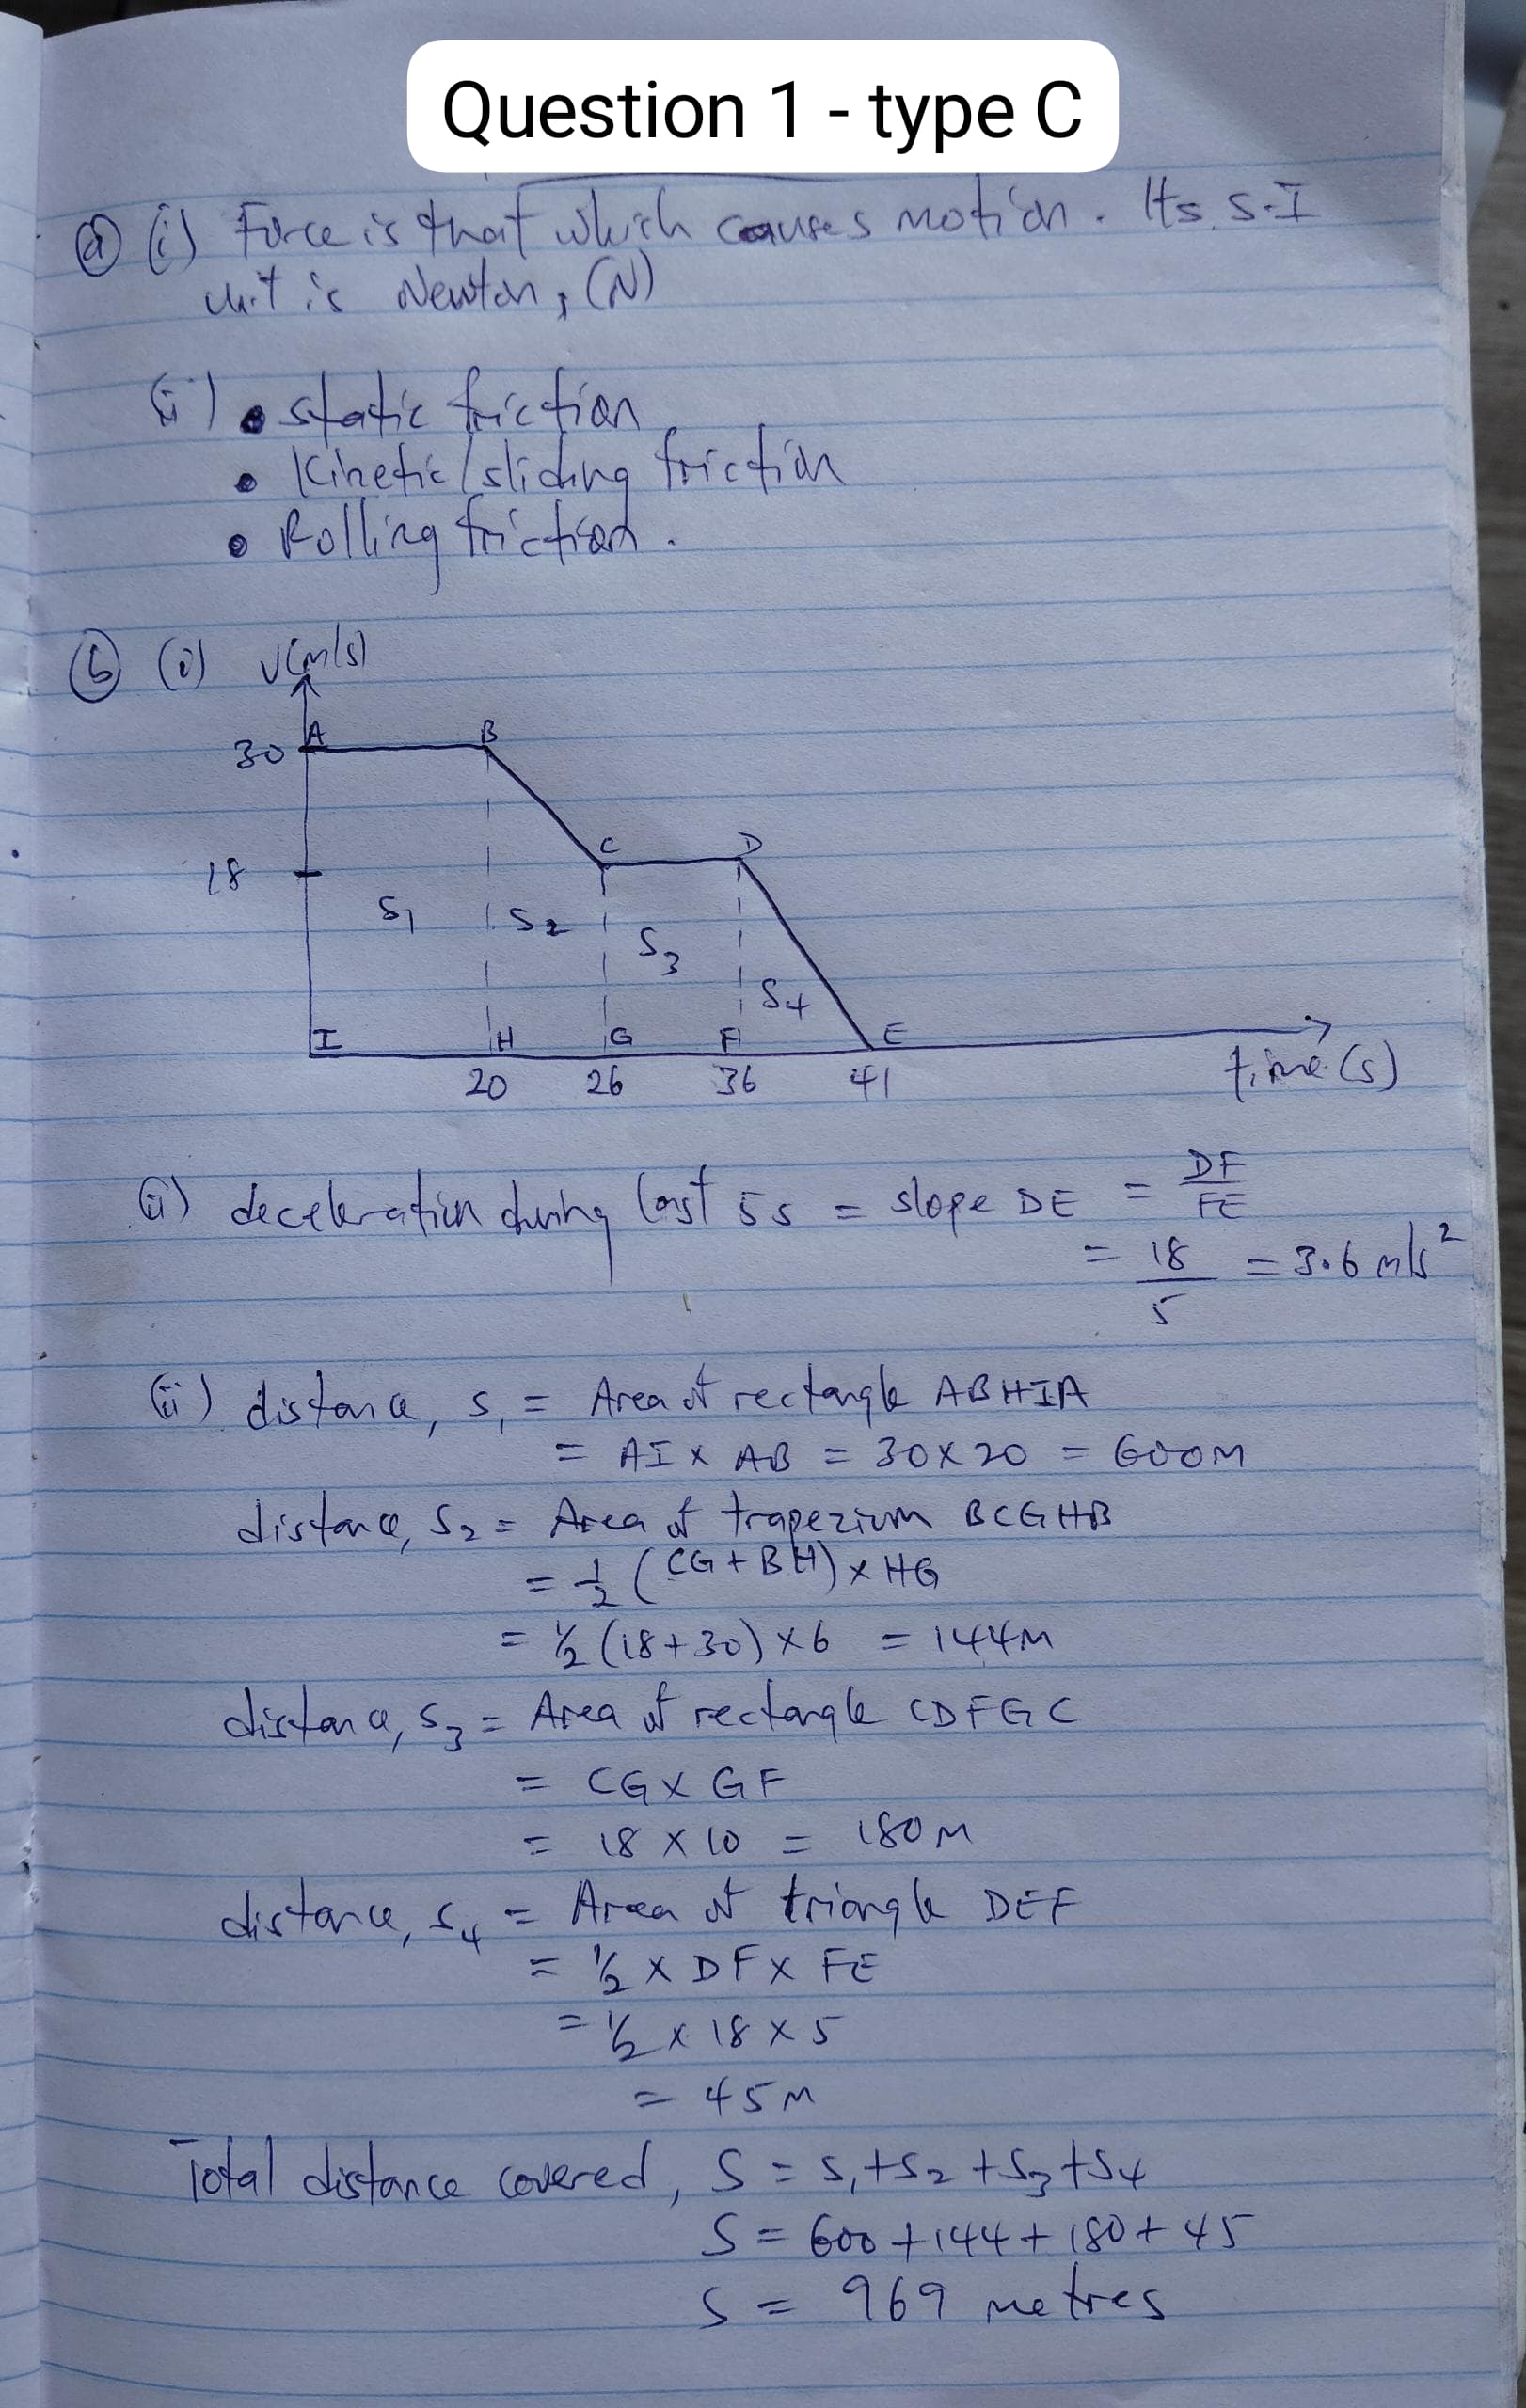 Question 1 - type C
(a) (i) Force is that which causes motion. Its S.I
unit is Newton, (N)
(ii) • static friction
• Kinetic/sliding friction
• Rolling friction.
(b) (i) V(m/s)
30 A B
18 C D
S1 S2 S3 S4
I H G F E
20 26 36 41 time(s)
(ii) deceleration during last 5s = slope DE = DF/FE
= 18/5 = 3.6 m/s²
(iii) distance, s₁ = Area of rectangle ABHIA
= AI x AB = 30x20 = 600m
distance, S₂ = Area of trapezium BCGHB
= 1/2 (CG + BH) x HG
= 1/2 (18+30) x 6 = 144m
distance, S₃ = Area of rectangle CDFGC
= CG x GF
= 18 x 10 = 180m
distance, S₄ = Area of triangle DEF
= 1/2 x DF x FE
= 1/2 x 18 x 5
= 45m
Total distance covered, S = S₁+S₂+S₃+S₄
S = 600+144+180+45
S = 969 metres